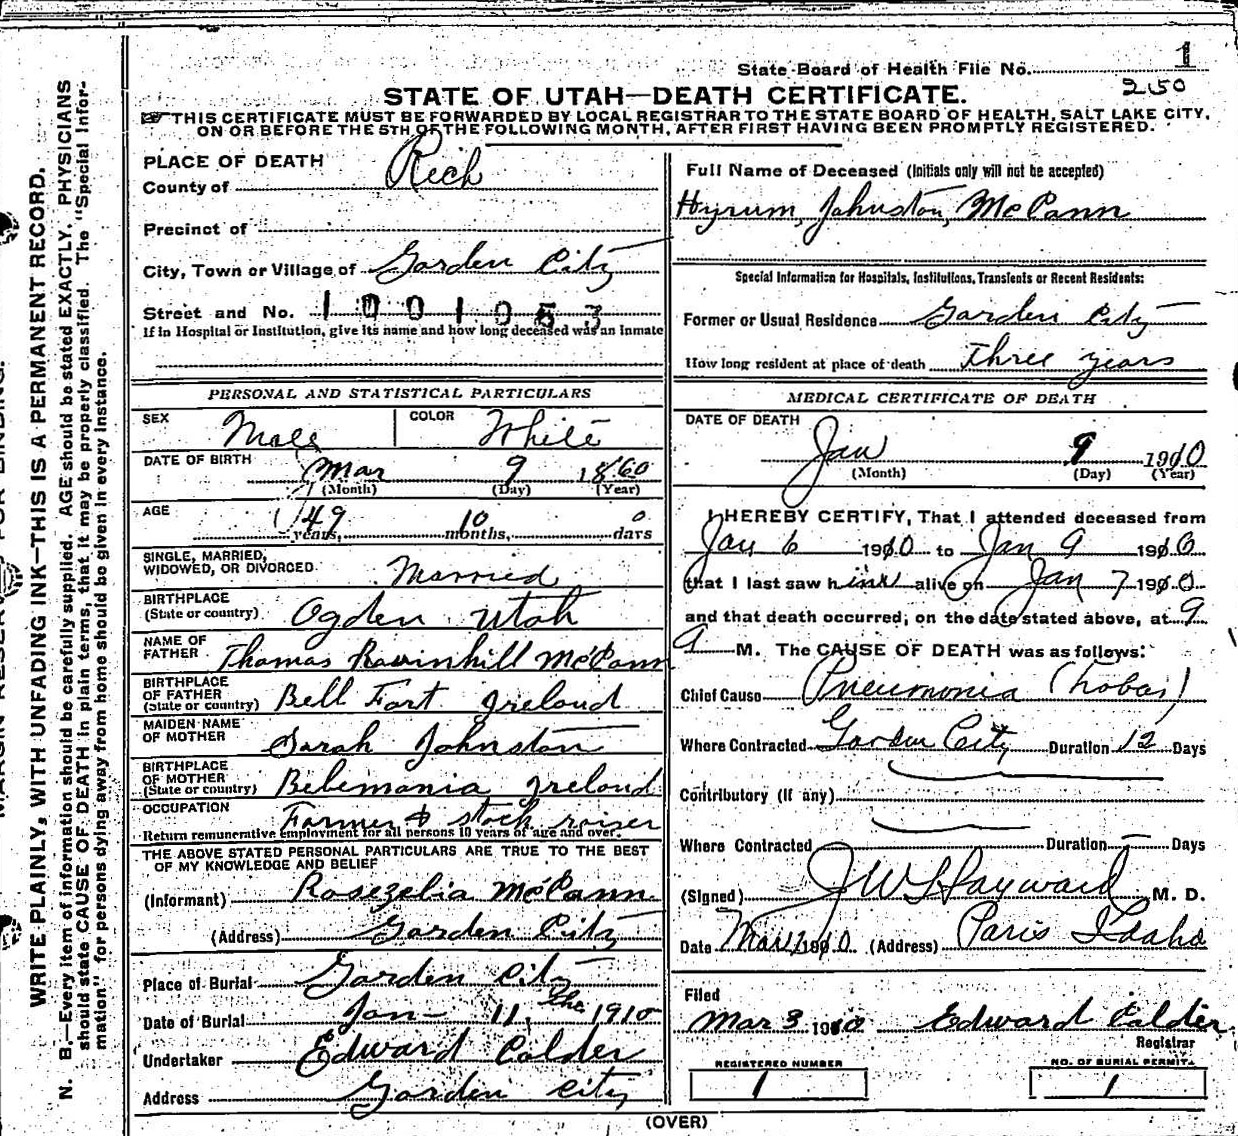 1
State Board of Health File No.
250
STATE OF UTAH—DEATH CERTIFICATE.
THIS CERTIFICATE MUST BE FORWARDED BY LOCAL REGISTRAR TO THE STATE BOARD OF HEALTH, SALT LAKE CITY,
ON OR BEFORE THE 5TH OF THE FOLLOWING MONTH, AFTER FIRST HAVING BEEN PROMPTLY REGISTERED.
WRITE PLAINLY, WITH UNFADING INK—THIS IS A PERMANENT RECORD.
N. B.—Every item of information should be carefully supplied. AGE should be stated EXACTLY. PHYSICIANS
should state CAUSE OF DEATH in plain terms, that it may be properly classified. The "Special Infor-
mation" for persons dying away from home should be given in every instance.
PLACE OF DEATH
County of Rich
Precinct of
City, Town or Village of Garden City
Street and No. 1001053
If in Hospital or Institution, give its name and how long deceased was an Inmate
PERSONAL AND STATISTICAL PARTICULARS
SEX Male COLOR White
DATE OF BIRTH Mar 9 1860
(Month) (Day) (Year)
AGE 49 years, 10 months, 0 days
SINGLE, MARRIED,
WIDOWED, OR DIVORCED Married
BIRTHPLACE
(State or country) Ogden Utah
NAME OF
FATHER Thomas Ravinhill McCann
BIRTHPLACE
OF FATHER
(State or country) Bell Fart Ireland
MAIDEN NAME
OF MOTHER Sarah Johnston
BIRTHPLACE
OF MOTHER
(State or country) Belemania Ireland
OCCUPATION Farmer & stock raiser
Return remunerative employment for all persons 10 years of age and over.
THE ABOVE STATED PERSONAL PARTICULARS ARE TRUE TO THE BEST
OF MY KNOWLEDGE AND BELIEF
(Informant) Rosezelia McCann
(Address) Garden City
Place of Burial Garden City
Date of Burial Jan 11 the 1910
Undertaker Edward Calder
Address Garden City
Full Name of Deceased (Initials only will not be accepted)
Hyrum, Johnston, McCann
Special Information for Hospitals, Institutions, Transients or Recent Residents:
Former or Usual Residence Garden City
How long resident at place of death Three years
MEDICAL CERTIFICATE OF DEATH
DATE OF DEATH
Jan 9 1910
(Month) (Day) (Year)
I HEREBY CERTIFY, That I attended deceased from
Jan 6 1910 to Jan 9 1910
that I last saw him alive on Jan 7 1910
and that death occurred, on the date stated above, at 9
a M. The CAUSE OF DEATH was as follows:
Chief Cause Pneumonia (Lobar)
Where Contracted Garden City Duration 12 Days
Contributory (If any)
Where Contracted Duration Days
(Signed) J W Hayward M. D.
Date Mar 1 1910. (Address) Paris Idaho
Filed
Mar 3 1910 Edward Calder
Registrar
REGISTERED NUMBER
1
NO. OF BURIAL PERMIT
1
(OVER)